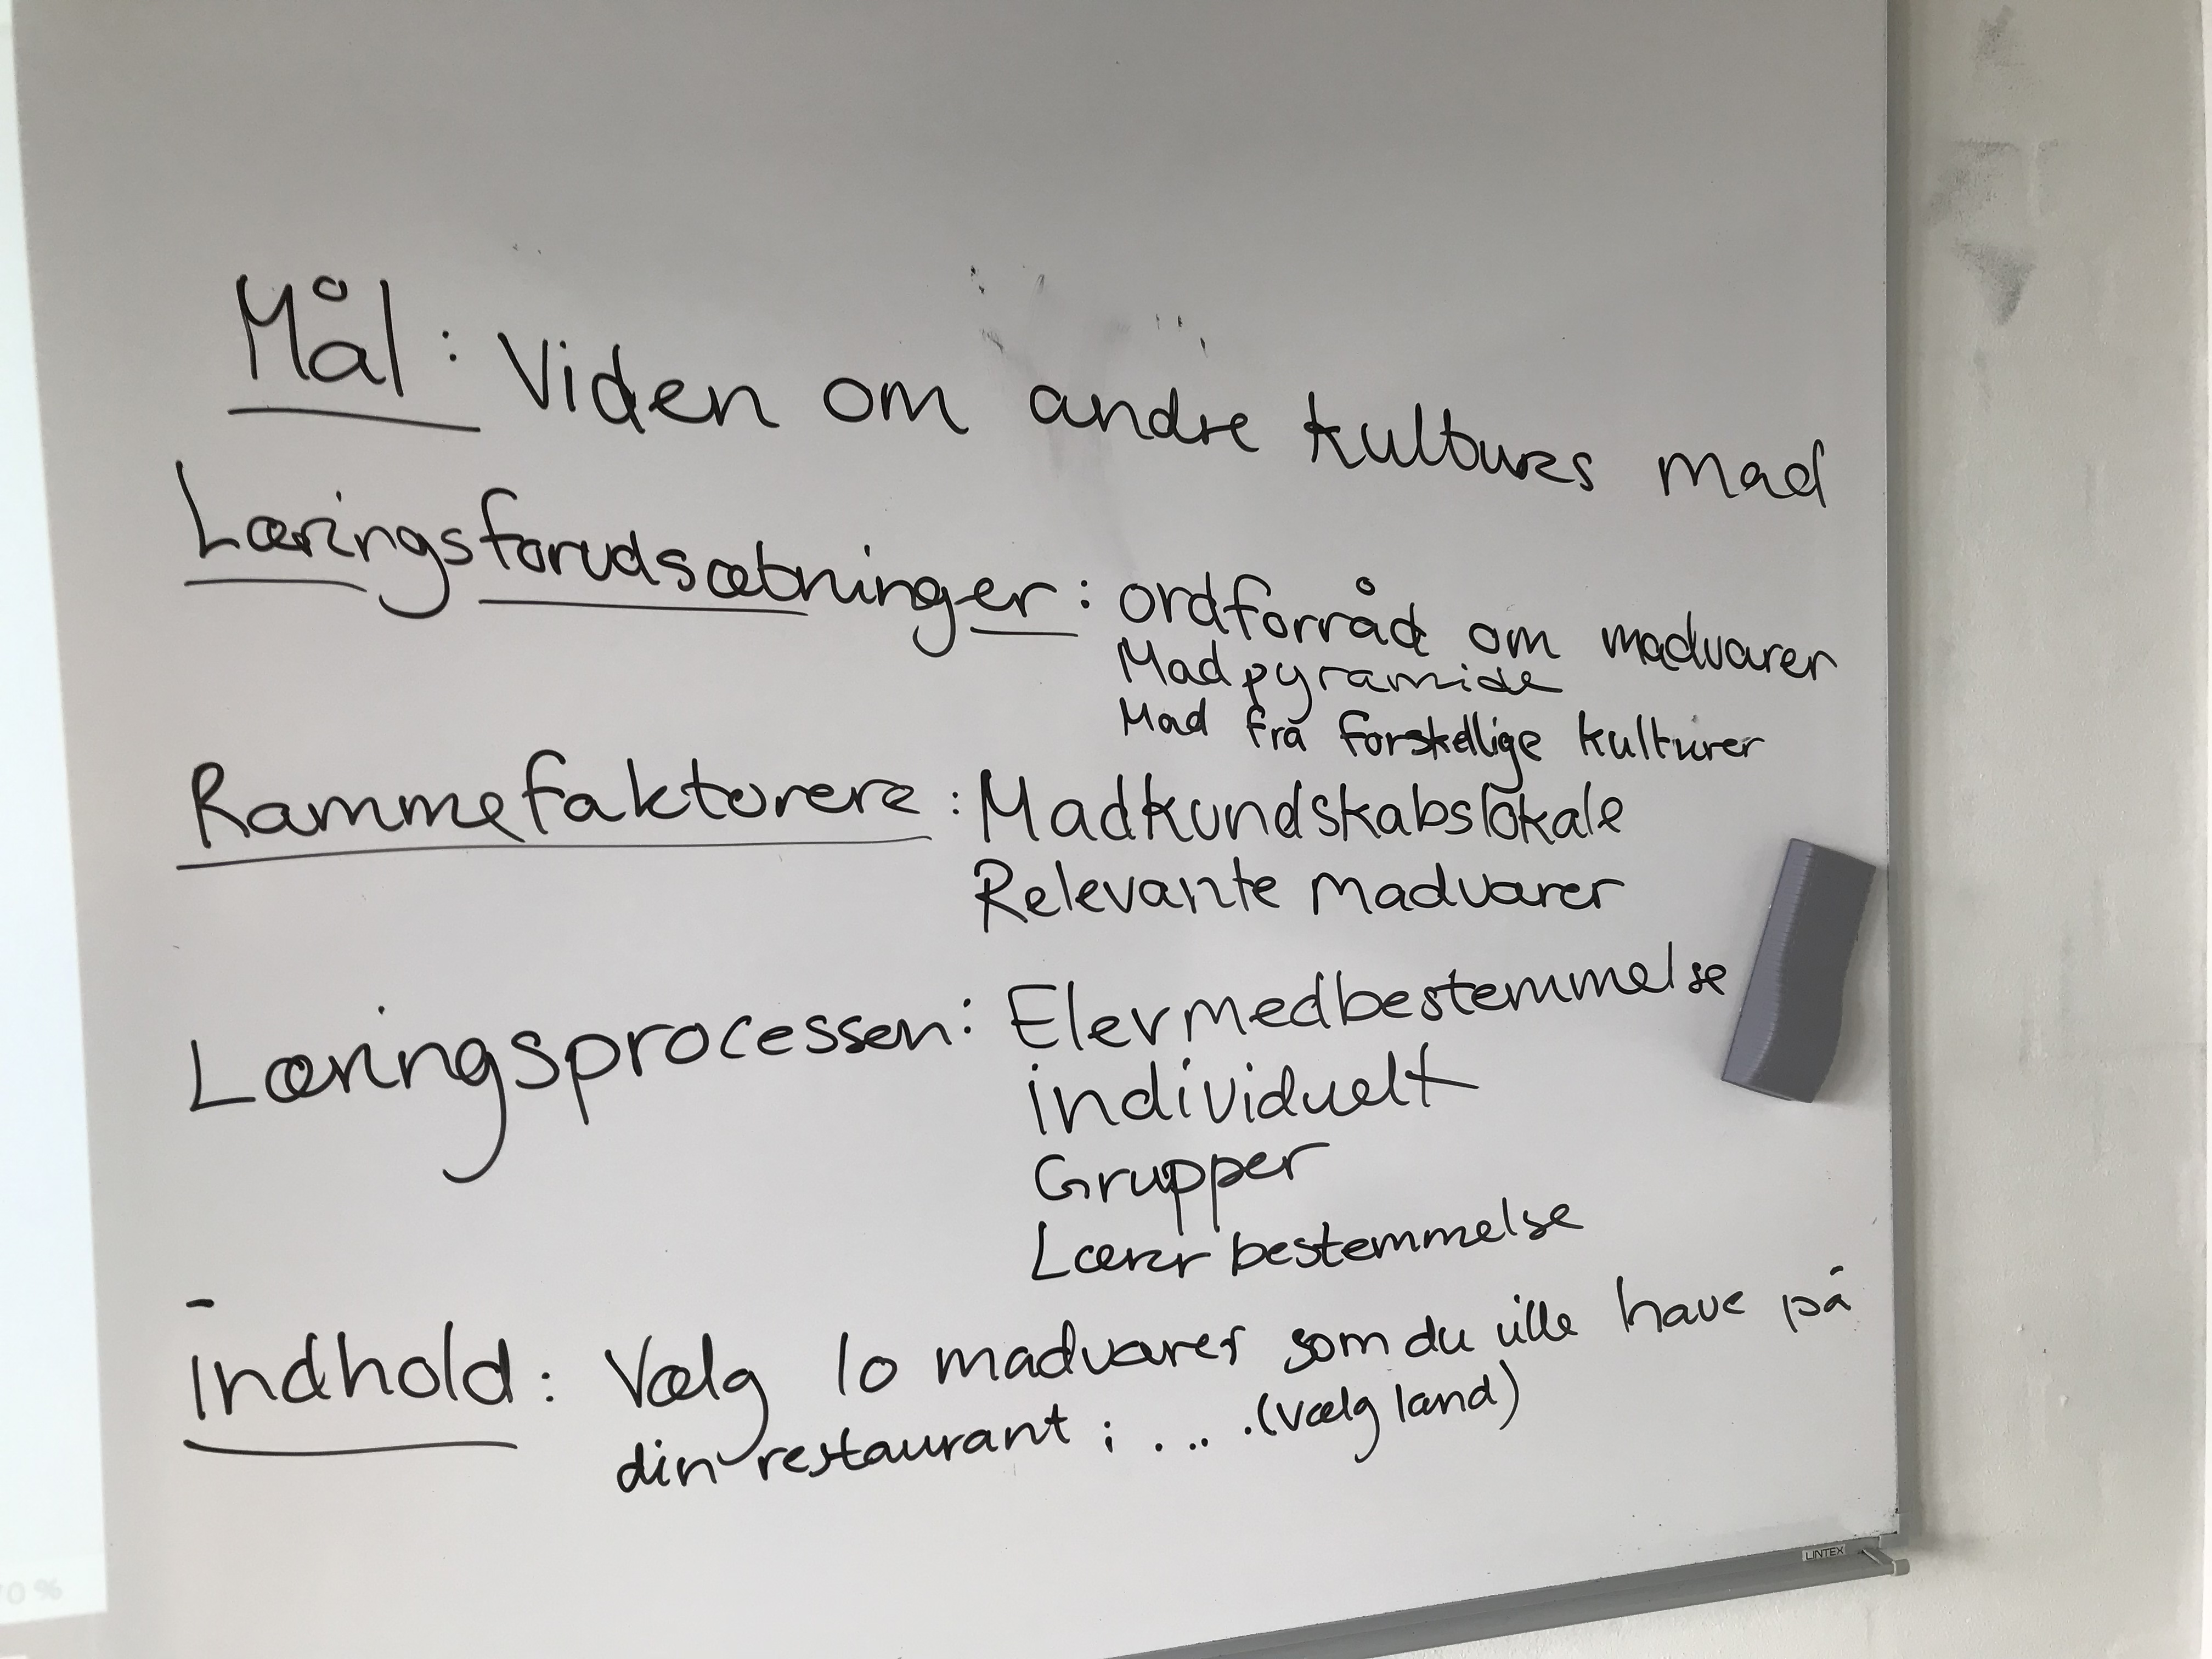 Mål : Viden om andre kulturs mad
Læringsforudsætninger : ordforråd om madvarer
Madpyramide
Mad fra forskellige kulturer
Rammefaktorere : Madkundskabslokale
Relevante madvarer
Læringsprocessen : Elevmedbestemmelse
individuelt
Grupper
Lærerbestemmelse
indhold : Vælg 10 madvarer som du ville have på
din restaurant i .... (vælg land)
LINTEX
0 %